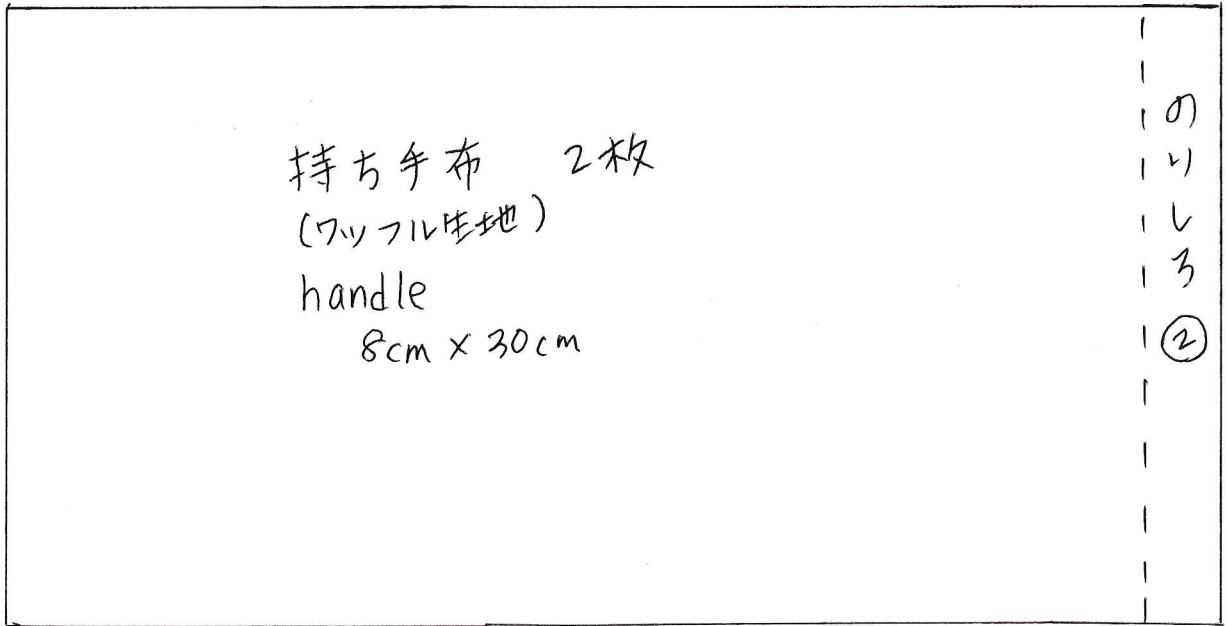 持ち手布　2枚
(ワッフル生地)
handle
8cm × 30cm
のりしろ②